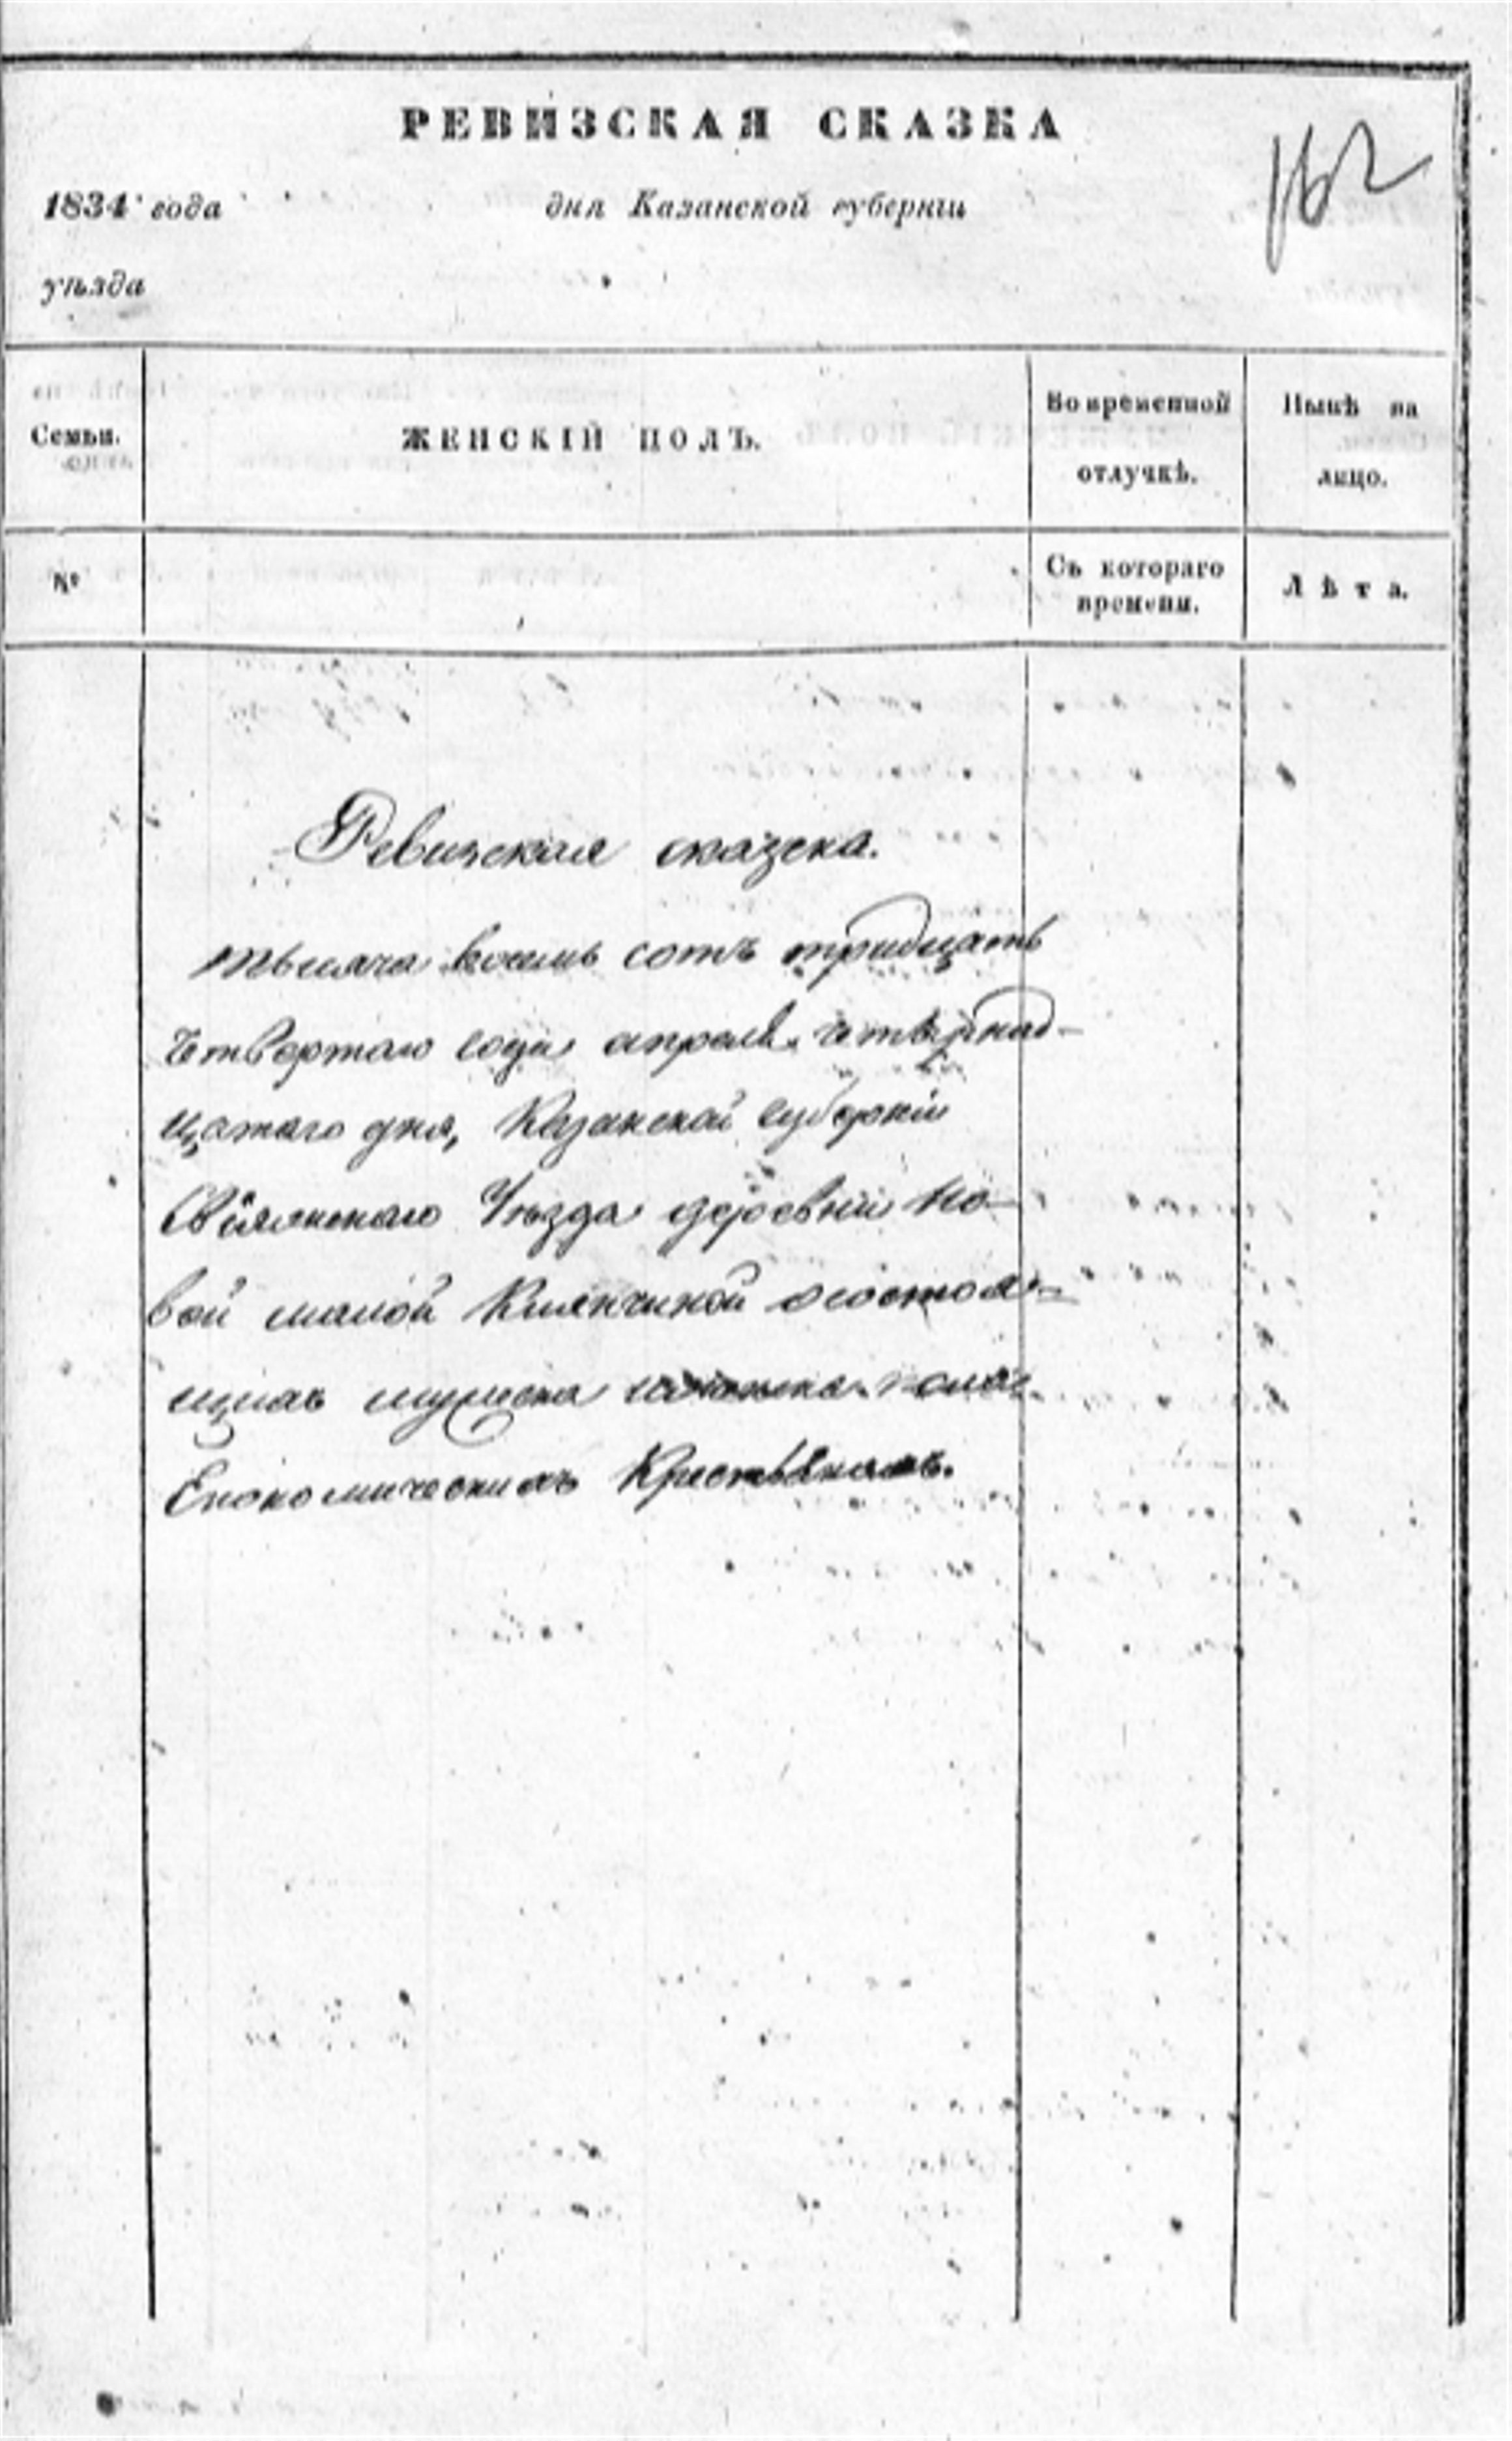 РЕВИЗСКАЯ СКАЗКА
162
1834 года дня Казанской губернiи
уѣзда
Семьи. ЖЕНСКIЙ ПОЛЪ. Во временной отлучкѣ. Нынѣ на лицо.
№ Съ котораго времени. Лѣта.
Ревизская сказска.
тысяча восемь сотъ тридцать
четвертаго года апреля четвернад-
цатаго дня, Казанской губернiи
Свiяжскаго Уѣзда деревни Но-
вой малой
мужеска
Економическихъ Крестьянахъ.